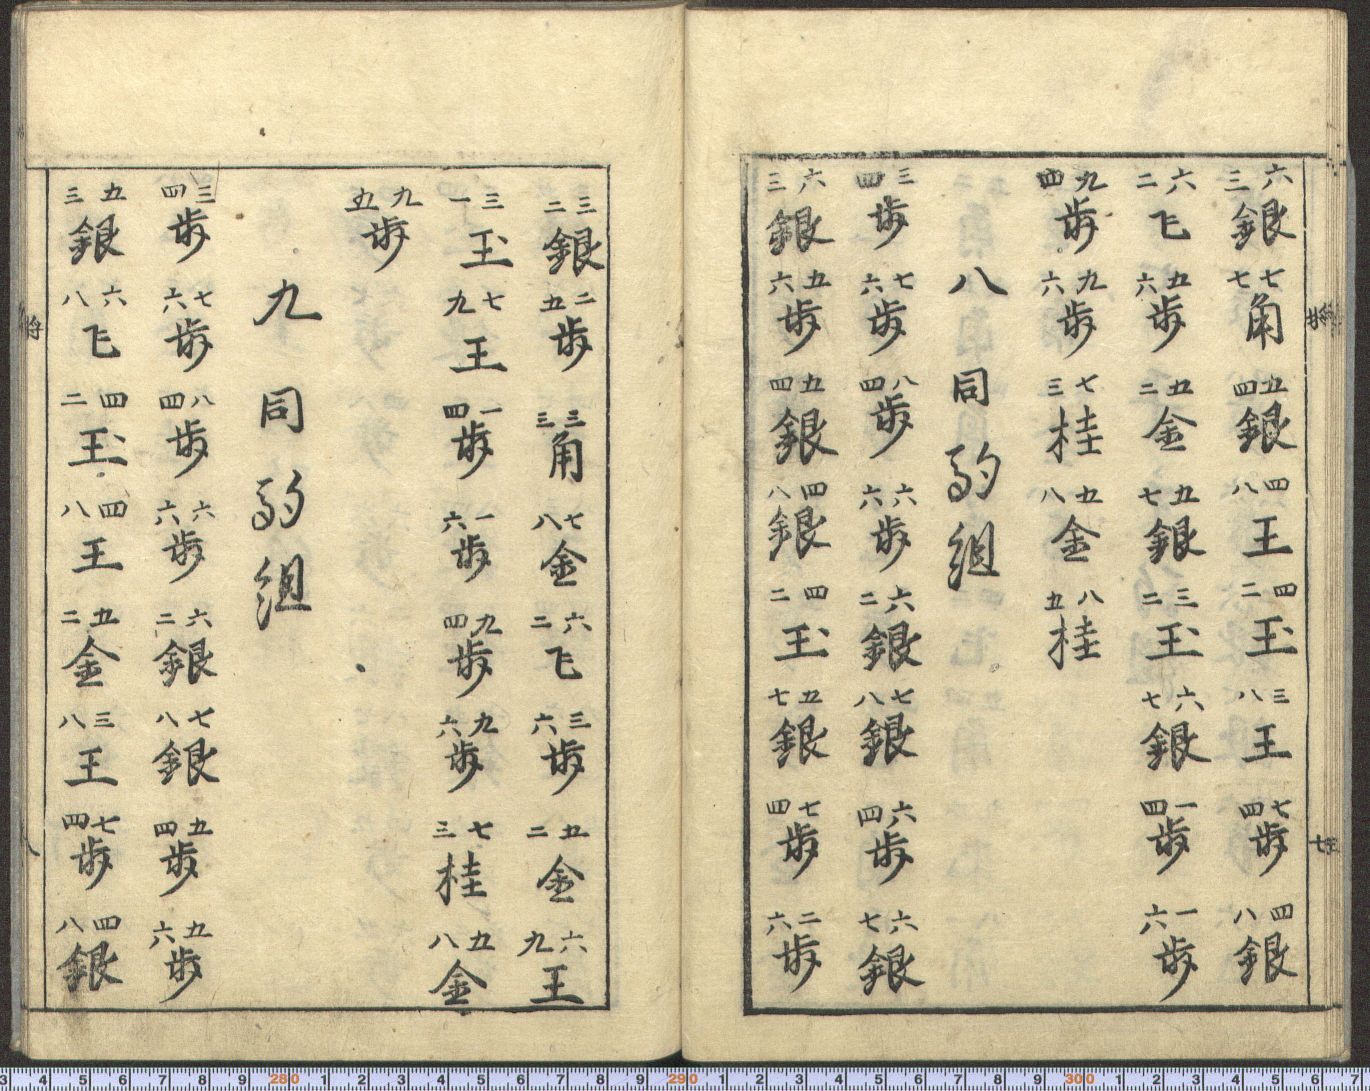 六三銀 七七角 五四銀 四八王 四二玉 三八王 七四歩 四八銀
六二飞 五六歩 五二金 五七銀 三二玉 六七銀 一四歩 一六歩
九四歩 九六歩 七三桂 五八金 八五桂
八 同 駒組
三四歩 七六歩 八四歩 六六歩 六二銀 七八銀 六四歩 六七銀
六三銀 五六歩 五四銀 四八銀 四二玉 五七銀 七四歩 二六歩
三二銀 二五歩 三三角 七八金 六二飞 三六歩 五二金 六九王
三一玉 七九王 一四歩 一六歩 九四歩 九六歩 七三桂 五八金
九五歩
九 同 駒組
三四歩 七六歩 八四歩 六六歩 六二銀 七八銀 五四歩 五六歩
五三銀 六八飞 四二玉 四八王 五二金 三八王 七四歩 四八銀
3 4 5 6 7 8 9 280 1 2 3 4 5 6 7 8 9 290 1 2 3 4 5 6 7 8 9 300 1 2 3 4 5 6 7